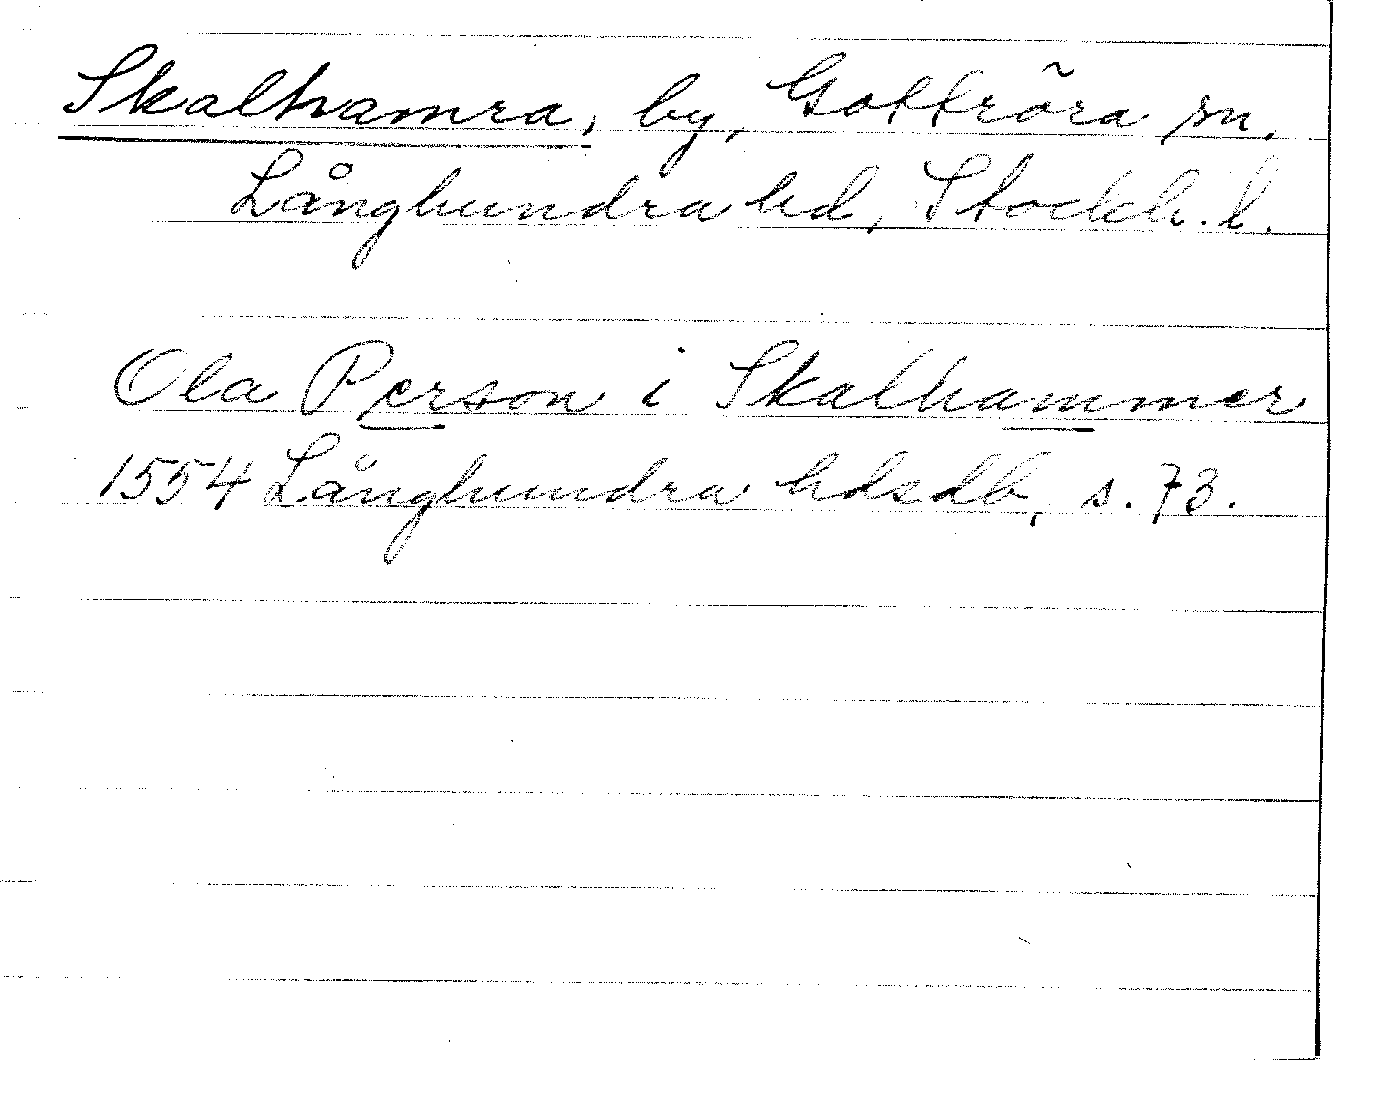 Skalhamra, by, Gottröra sn.
Långhundra hd, Stockh. l.
Ola Person i Skalhammer
1554 Långhundra hdsdb, s. 73.